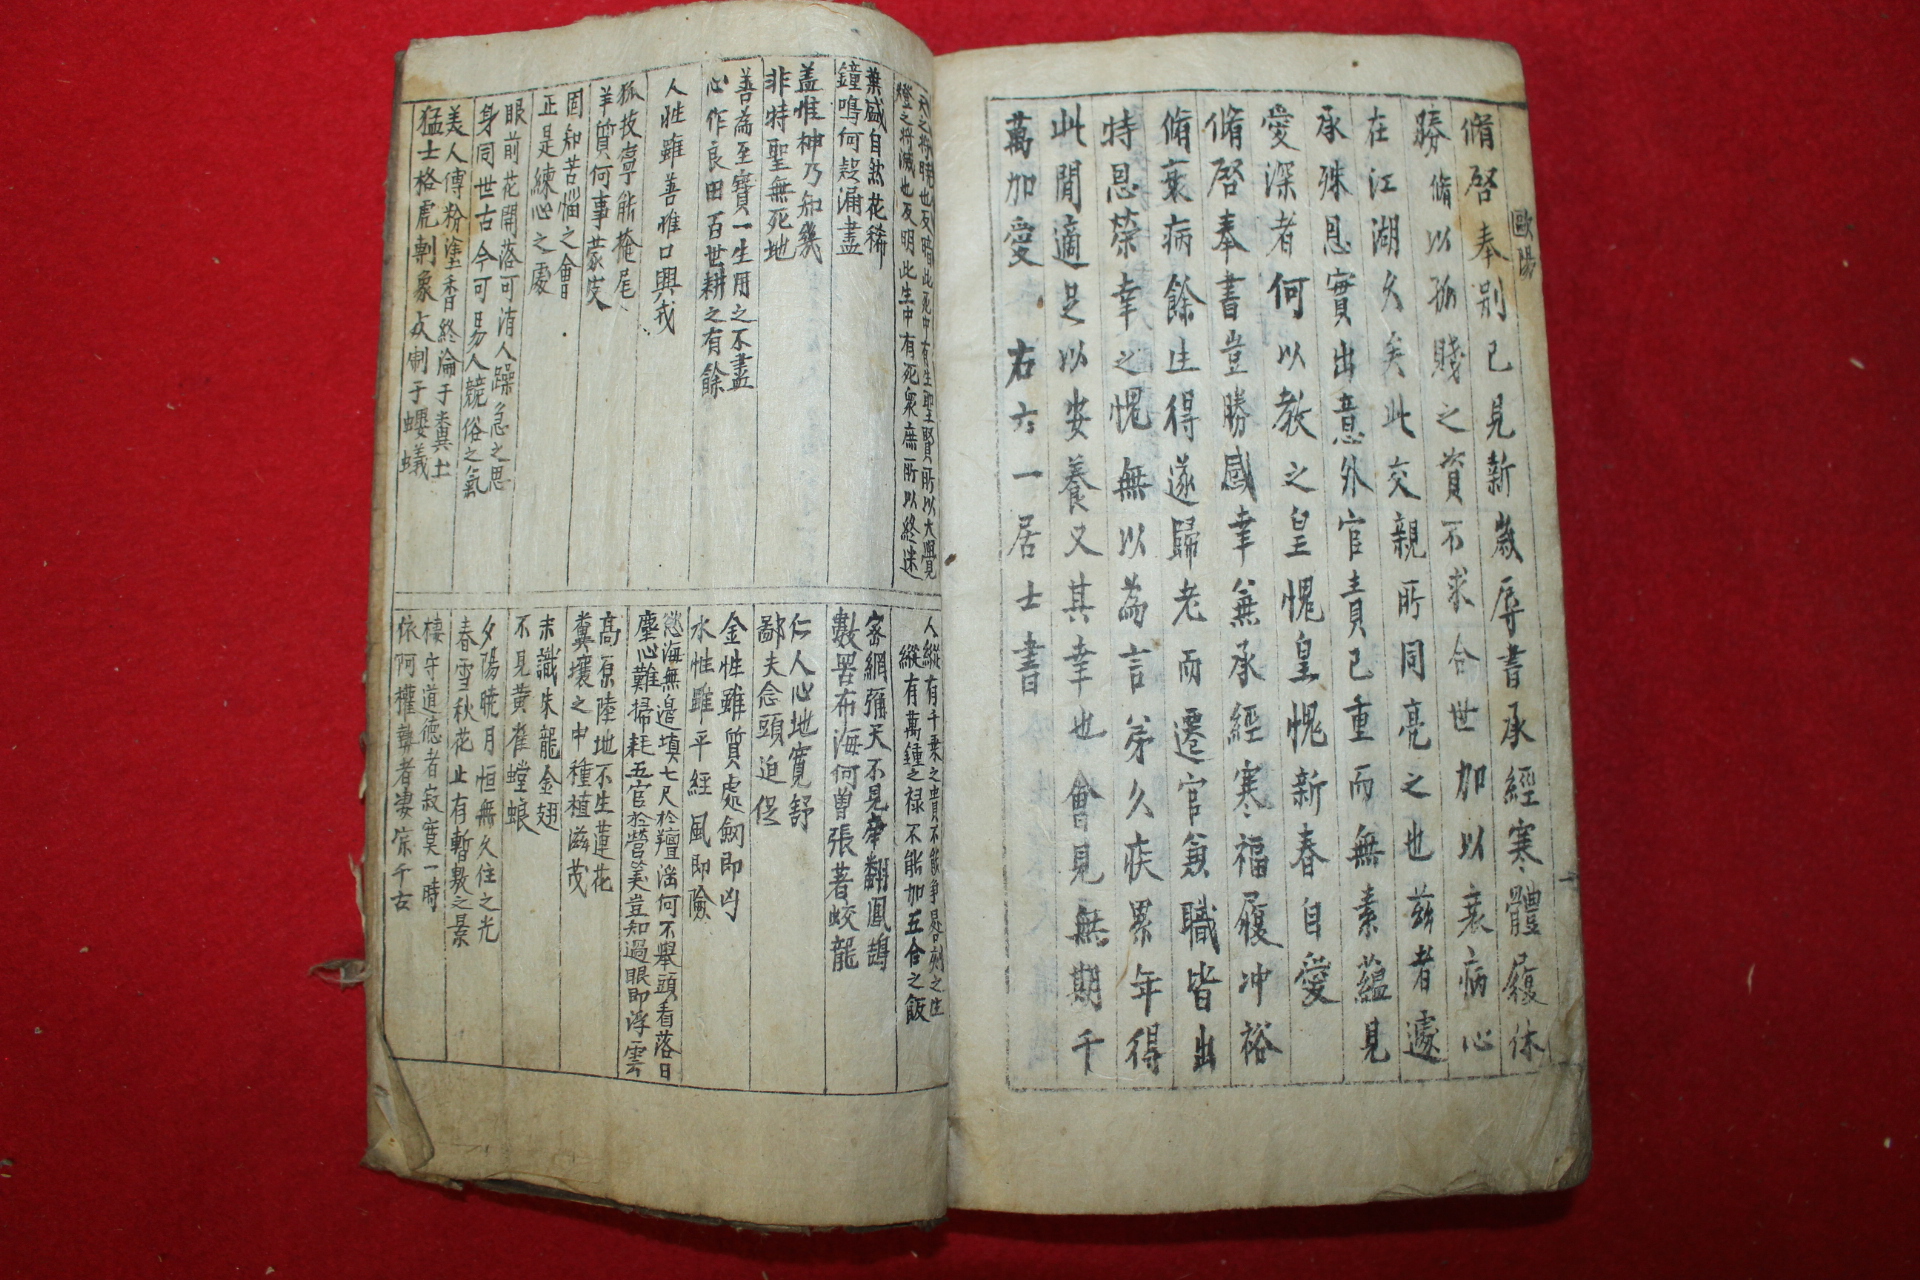 歐陽
脩啓奉别已見新歲辱書承經寒體履休
勝脩以孤賤之資不求合世加以衰病心
在江湖久矣此交親所同亮之也茲者遽
承殊恩實出意外官責已重而無素蘊見
愛深者何以教之皇愧皇愧新春自愛
脩啓奉書豈勝感幸兼承經寒福履冲裕
脩衰病餘生得遂歸老而遷官兼職皆出
特恩榮幸之愧無以為言弟久疾累年得
此閒適足以安養又其幸也會見無期千
萬加愛 右六一居士書
天之將曉也反暗此死中有生聖賢所以大覺
燈之將滅也反明此生中有死衆庶所以終迷
葉盛自然花稀
鐘鳴何疑漏盡
盖惟神乃知幾
非特聖無死地
善為至寶一生用之不盡
心作良田百世耕之有餘
人性雖善惟口興戎
狐技寧能掩尾
羊質何事蒙皮
固知苦惱之會
正是練心之處
眼前花開落可消人躁急之思
身同世古今可男人競俗之氣
美人傅粉塗香終淪于糞土
猛士格虎制象反制于螻蟻
人縱有千乘之貴不能爭晷刻之生
縱有萬鍾之祿不能加五合之飯
密網彌天不見牽翻鳳鵠
數罟布海何曽張著蛟龍
仁人心地寬舒
鄙夫念頭迫促
金性雖質處劒即凶
水性雖平經風即險
慾海無邉填七尺於羶滛何不舉頭看落日
塵心難掃耗五官於營美豈知過眼即浮雲
高原陸地不生蓮花
糞壤之中種植滋茂
未識朱龍金翅
不見黄雀螳蜋
夕陽曉月恒無久住之光
春雪秋花止有暫敷之景
棲守道德者寂寞一時
依阿權勢者凄凉千古